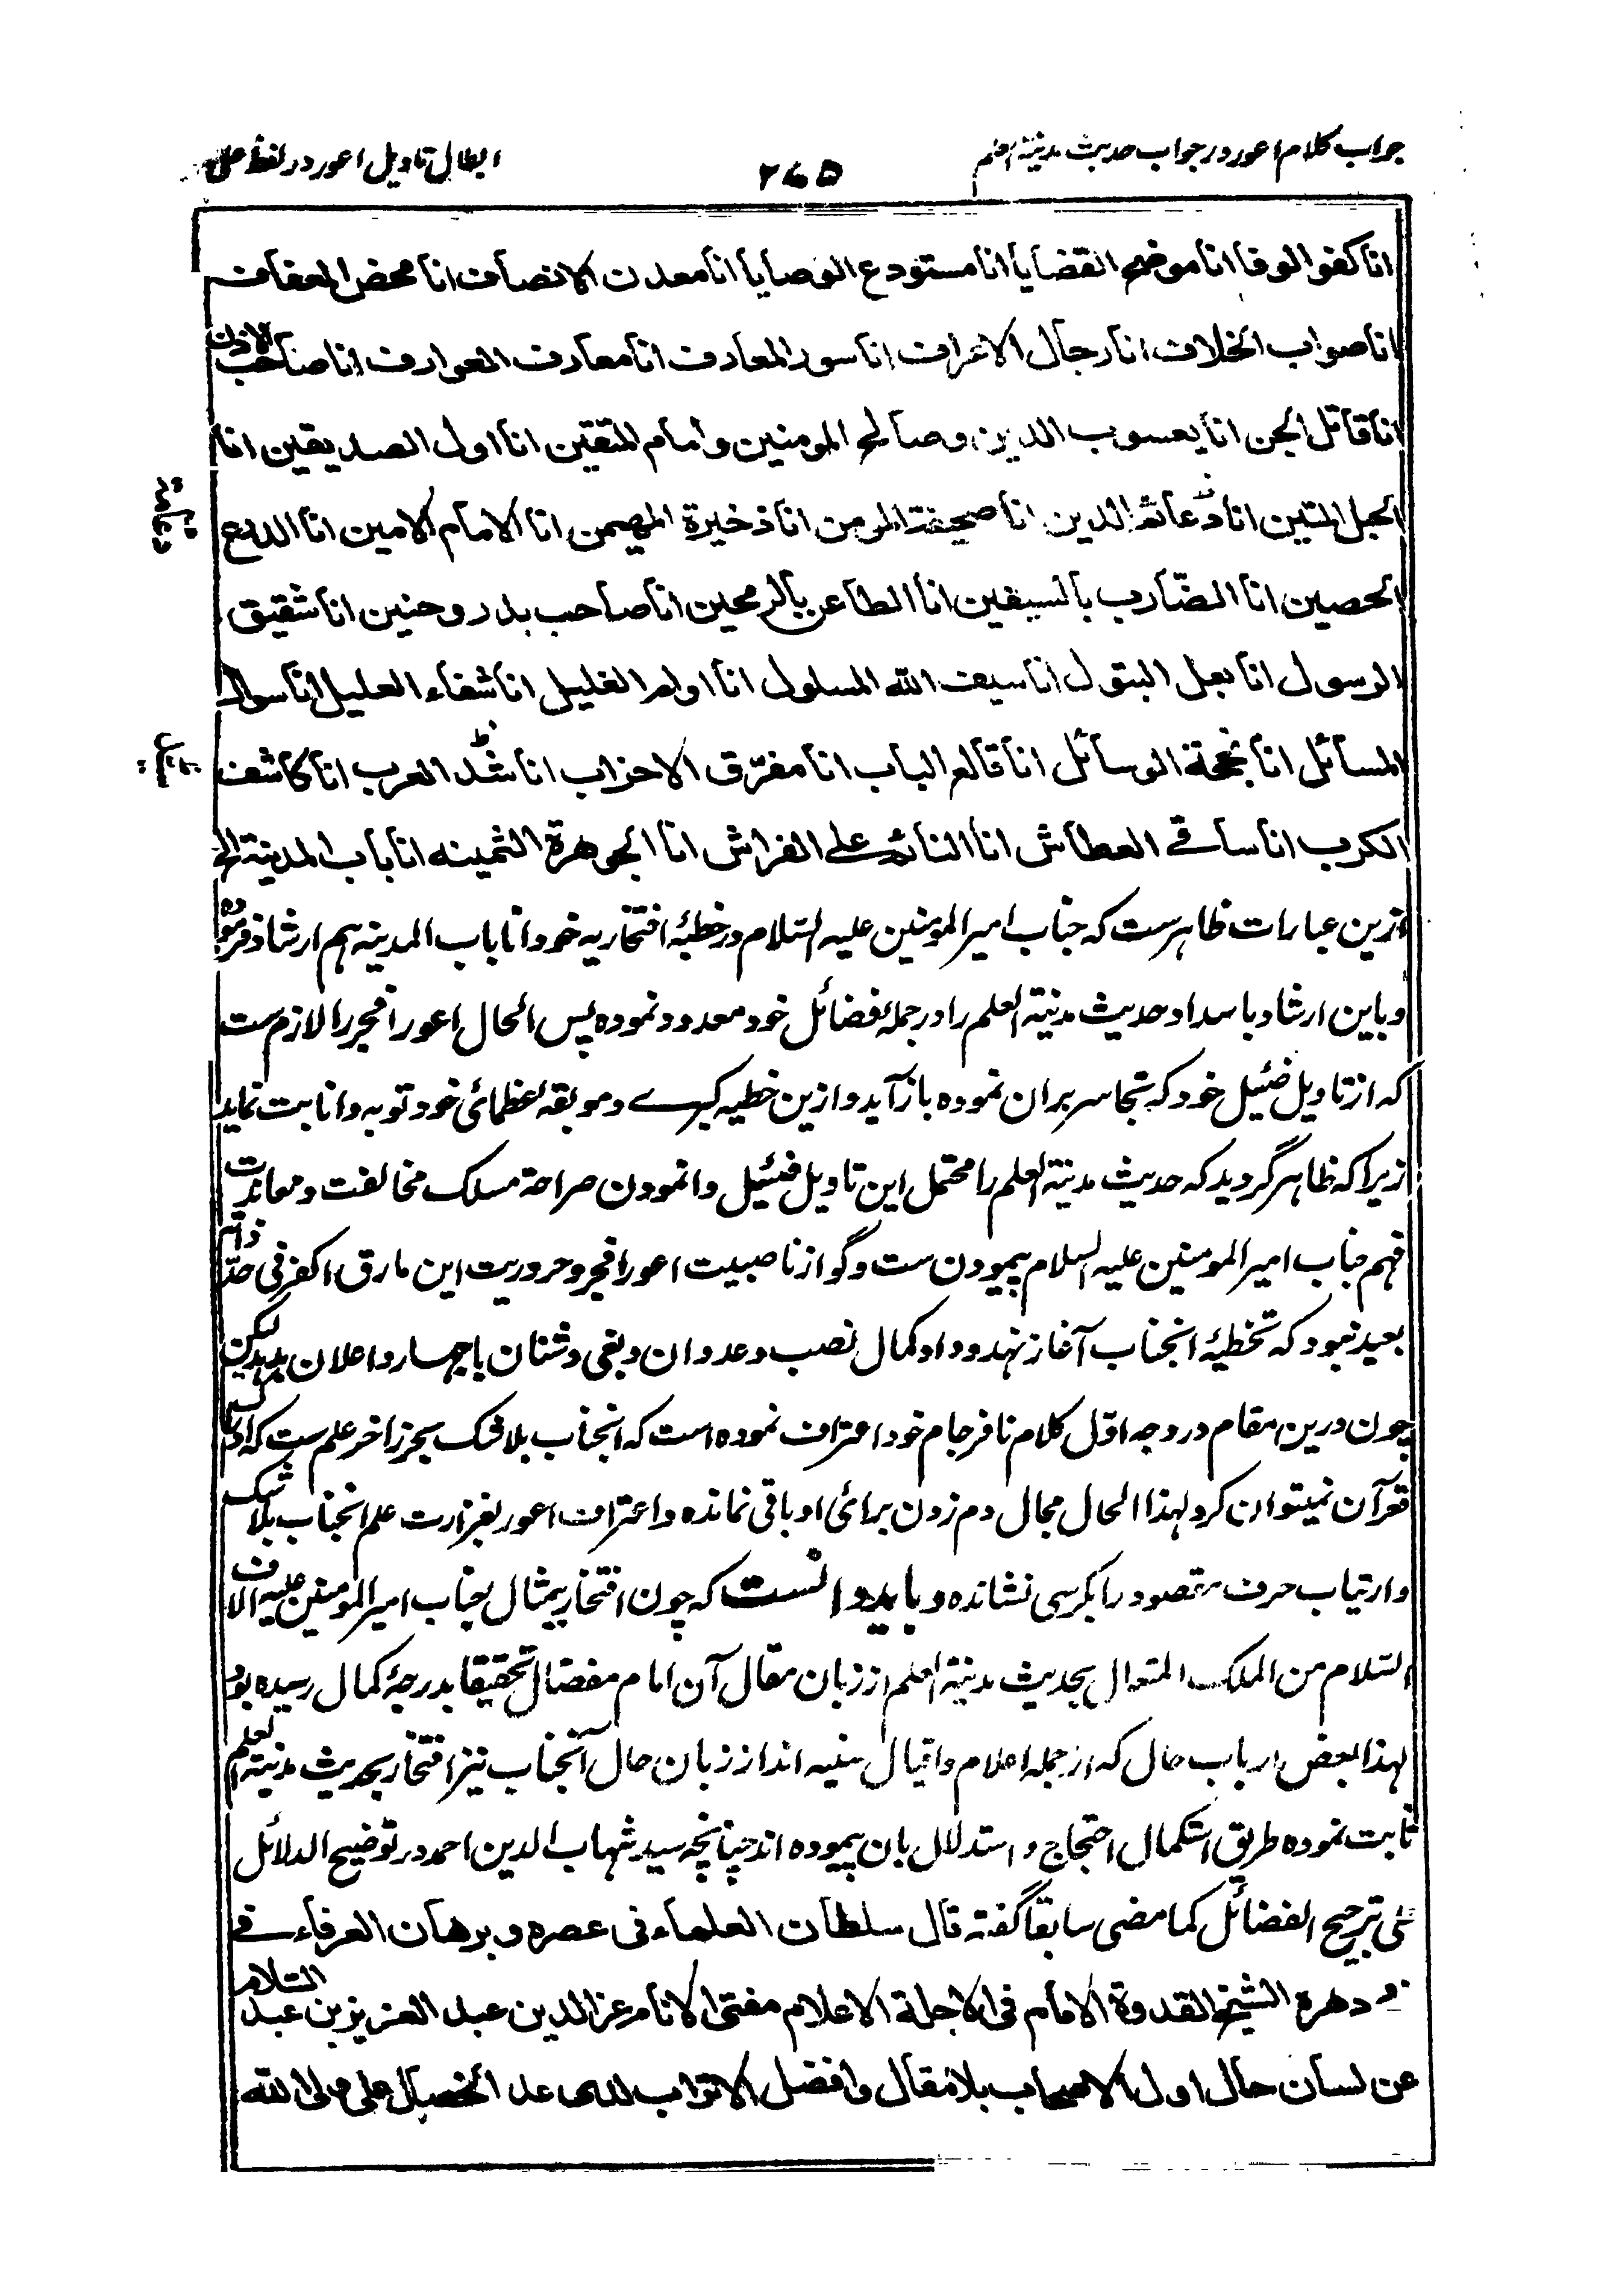 جواب کلام اعور در جواب حدیث مدینة العلم
۲۶۵
ابطال تاویل اعور در لفظ علی
انا کفو الوفا انا موضح القضایا انا مستودع الوصایا انا معدن الانصاف انا محض العفاف
انا صواب الخلاف انا رجال الاعراف انا سور المعارف انا معارف العوارف انا صاحب الاذن
انا قاتل الجن انا یعسوب الدین و صالح المومنین و امام المتقین انا اول الصدیقین انا
الحبل المتین انا دعائم الدین انا صحیفة المومن انا ذخیرة المهیمن انا الامام الامین انا الدرع
الحصین انا الضارب بالسیفین انا الطاعن بالرمحین انا صاحب بدر و حنین انا شقیق
الرسول انا بعل البتول انا سیف الله المسلول انا اوام الغلیل انا شفاء العلیل انا سوال
المسائل انا نجحة الوسائل انا قالع الباب انا مفرّق الاحزاب انا سید العرب انا کاشف
الکرب انا ساقی العطاش انا النائم علی الفراش انا الجوهرة الثمینه انا باب المدینة الخ
ازین عبارات ظاهرست که جناب امیر المومنین علیه السّلام در خطبهٔ افتخاریه خود انا باب المدینه هم ارشاد فرموده
و باین ارشاد باسداد حدیث مدینة العلم را در جمله فضائل خود معدود نموده پس الحال اعور افجر را لازم ست
که از تاویل ضئیل خود که تجاسر بران نموده باز آید و ازین خطیه کبرے و موبقه عظمائی خود توبه و انابت نماید
زیرا که ظاهر گردید که حدیث مدینة العلم را محتمل این تاویل ضئیل وانمودن صراحة مسلک مخالفت و معاندت
فهم جناب امیر المومنین علیه السلام پیمودن ست و گو از ناصبیت اعور افجر و حروریت این مارق اکفر فی حدّ ذاته
بعید نبود که تخطیهٔ انجناب آغاز نهد و داد کمال نصب و عدوان و بغی و شنان با جهار و اعلان بدهد لیکن
چون درین مقام در وجه اوّل کلام نافرجام خود اعتراف نموده است که انجناب بلاشک بحر زاخر علم ست که ادراک
قعر آن نمیتوان کرد لهذا الحال مجال دم زدن برای او باقی نمانده و اعتراف اعور بغزارت علم انجناب بلا شک
و ارتیاب حرف مقصود را بکرسی نشانده و باید دانست که چون افتخار بیمثال جناب امیر المومنین علیه الاف
السّلام من الملک المتعال بحدیث مدینة العلم از زبان مقال آن امام مفضال تحقیقا بدرجهٔ کمال رسیده بود
لهذا بعض ارباب حال که از جمله اعلام و اقیال سنیه اند از زبان حال آنجناب نیز افتخار بحدیث مدینة العلم
ثابت نموده طریق استکمال احتجاج و استدلال بان پیموده اند چنانچه سید شهاب الدین احمد در توضیح الدلائل
علی ترجیح الفضائل کما مضی سابقا گفته قال سلطان العلماء فی عصره و برهان العرفاء فی
دهره الشیخ القدوة الامام فی الاجلة الاعلام مفتی الانام عز الدین عبد العزیز بن عبد السلام
عن لسان حال اول الاصحاب بلا مقال و افضل الاتراب لدی عد الخصال علی ولی الله